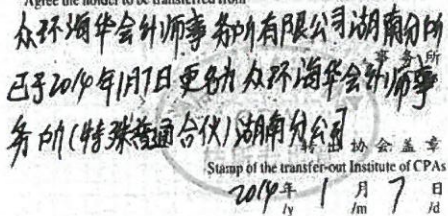 Agree the holder to be transferred from
众环海华会计师事务所有限公司湖南分所
事务所
已于2014年1月7日更名为众环海华会计师事
务所(特殊普通合伙)湖南分公司
转出协会盖章
Stamp of the transfer-out Institute of CPAs
2014年 1 月 7 日
/y /m /d